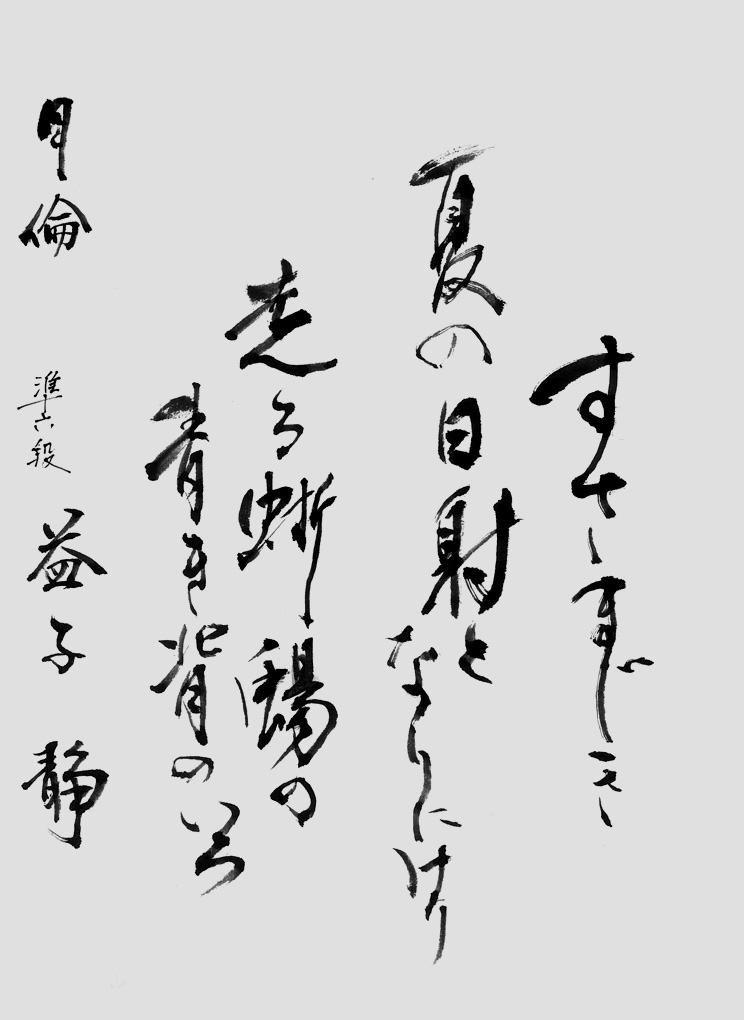 すさまじき
夏の日射と
なりにけり
走る蜥蜴の
青き背のいろ
月倫 準六段 益子 静